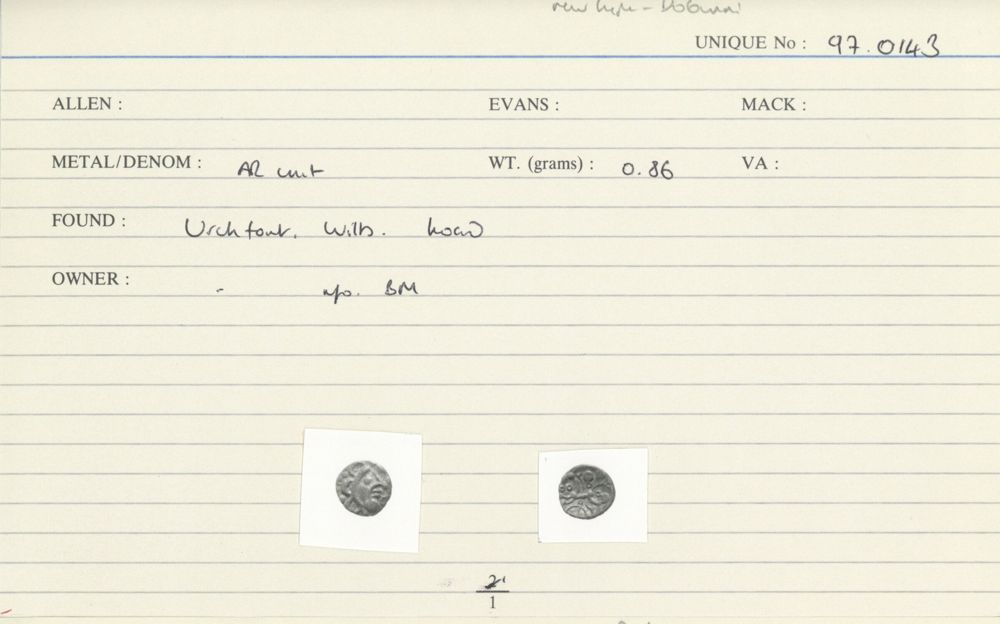 new type - Dobunni
UNIQUE No : 97.0143
ALLEN : EVANS : MACK :
METAL/DENOM : AR unit WT. (grams) : 0.86 VA :
FOUND : Urchfont. Wilts. hoard
OWNER : - BM
2
1